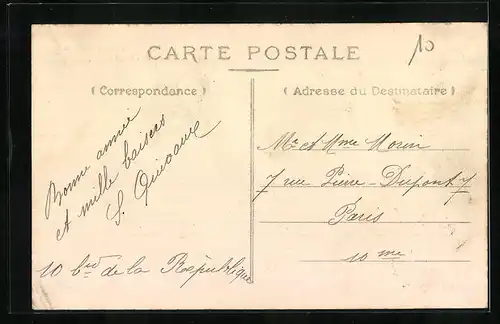 CARTE POSTALE
10
(Correspondance)
(Adresse du Destinataire)
Bonne année
et mille baisers
S.
10 bvd de la République
Mr et Mme Morin
7 rue Pierre-Dupont 7
Paris
10 me